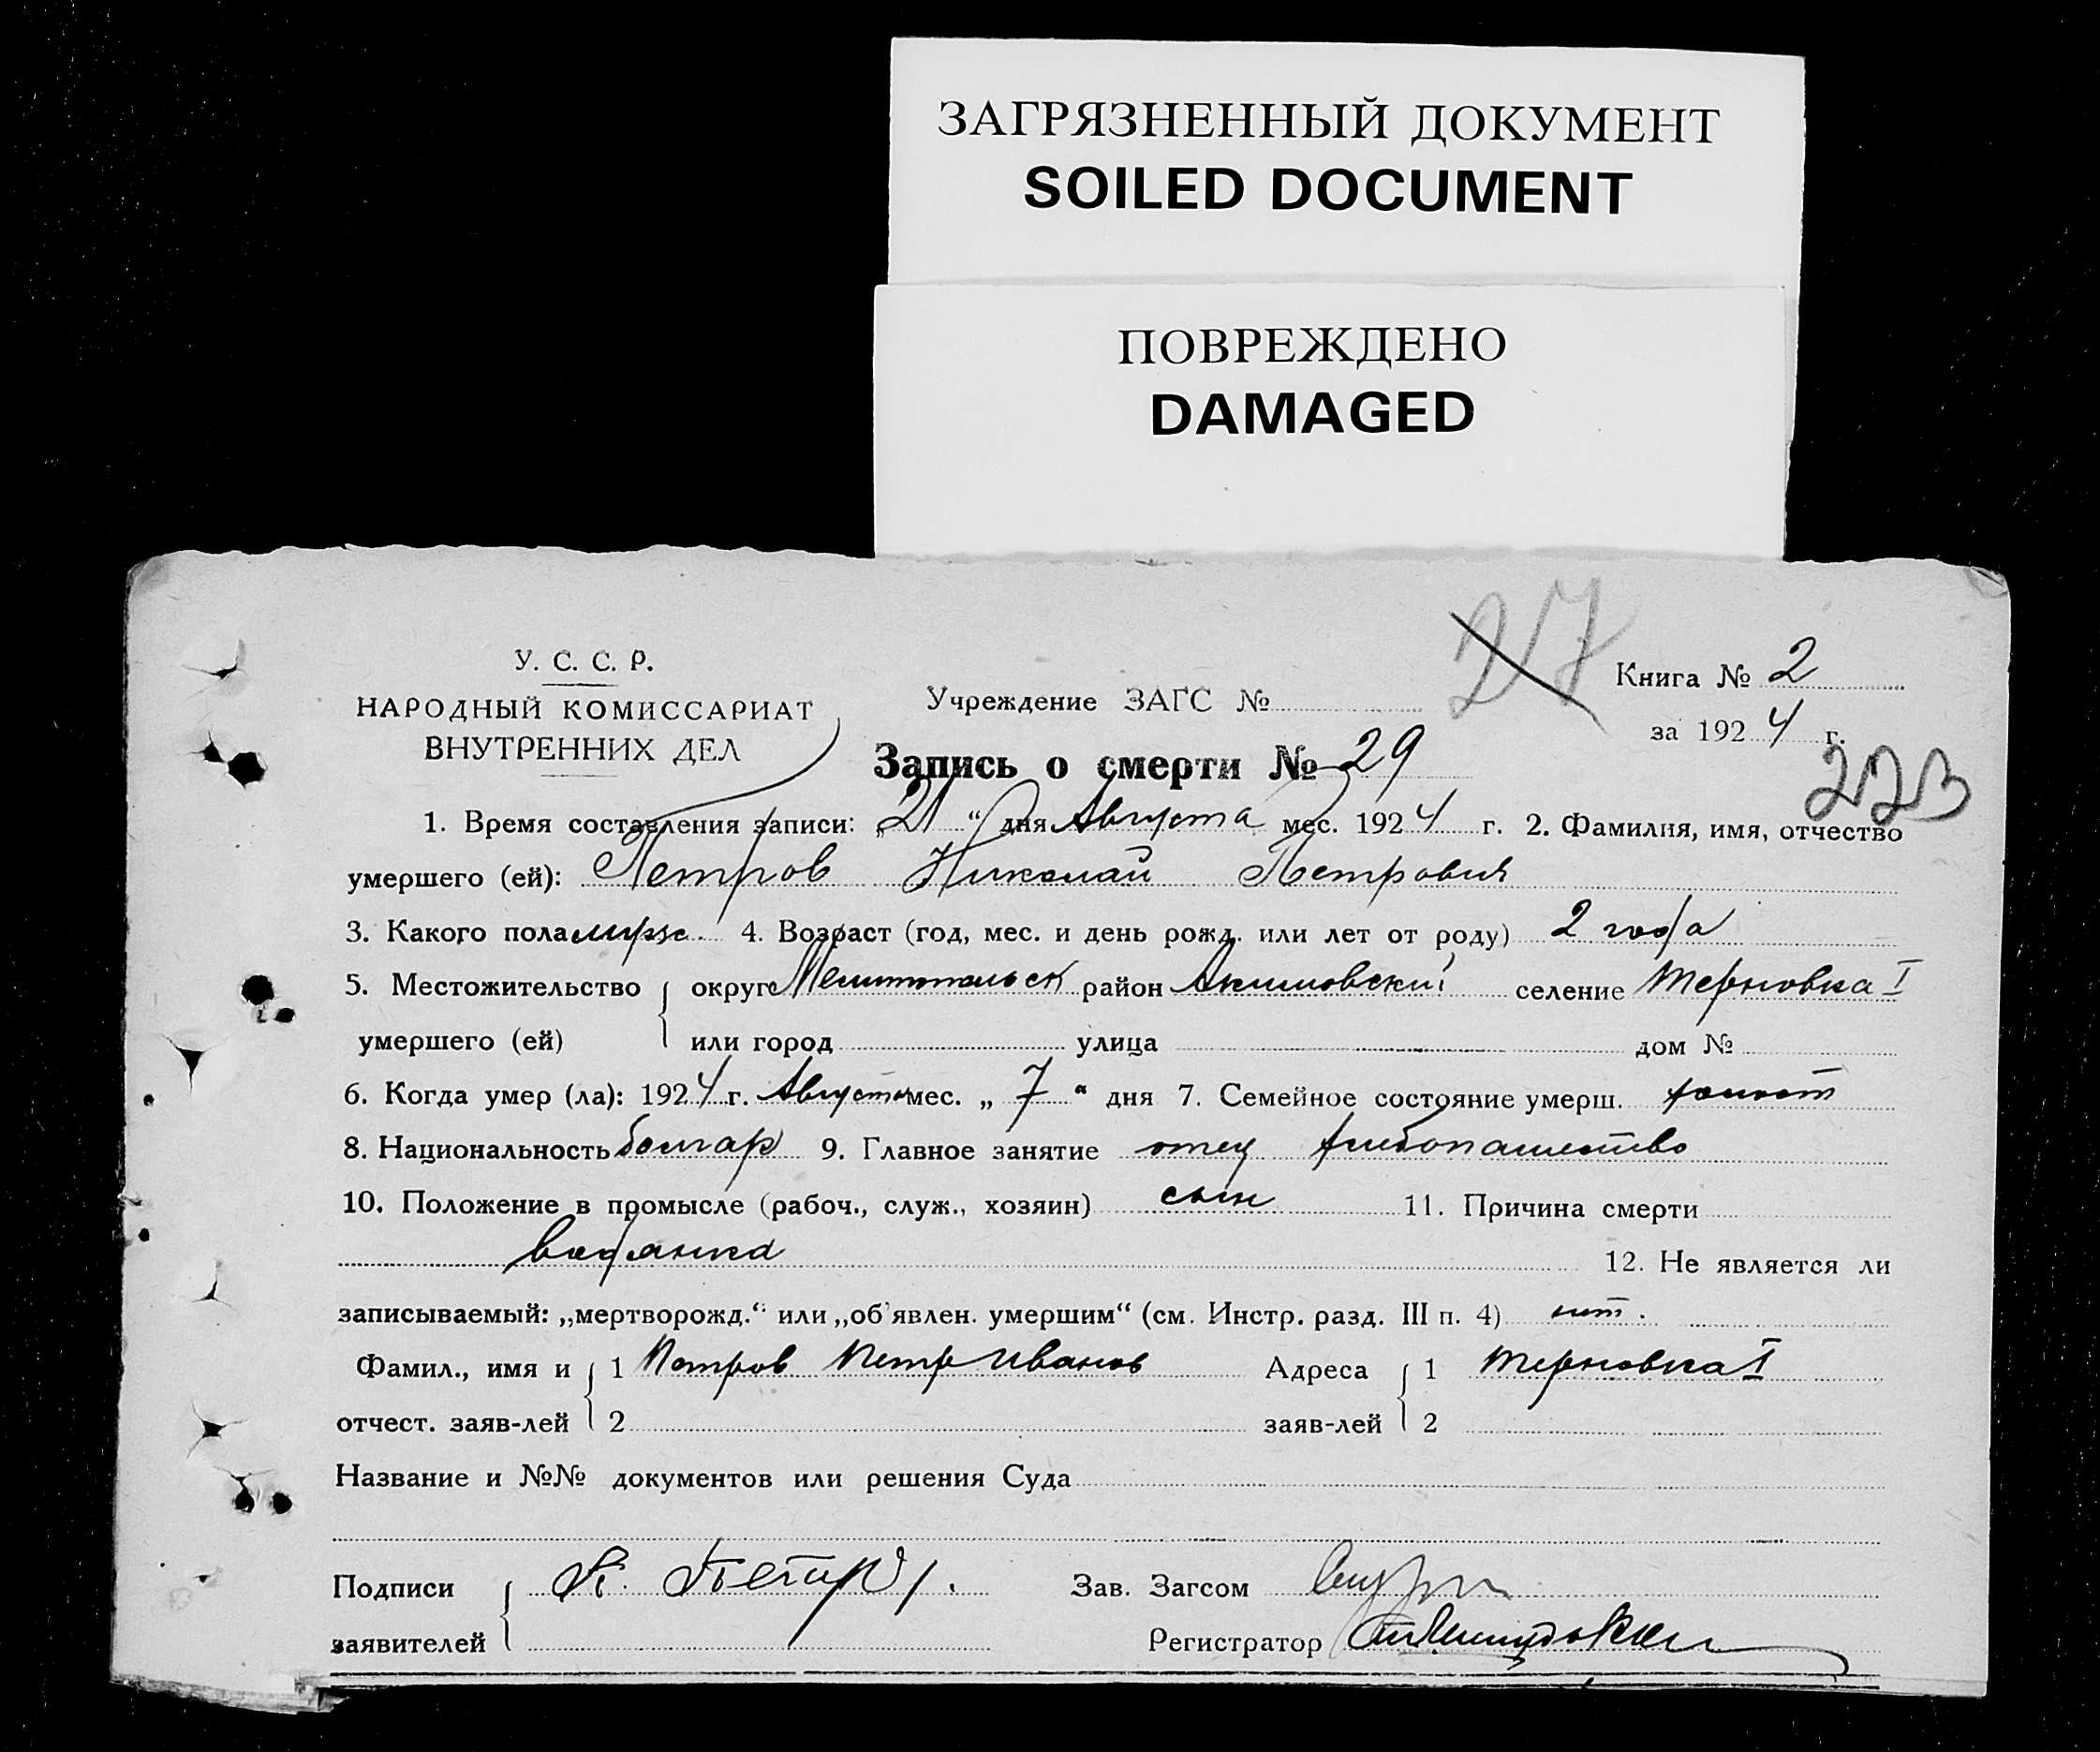 ЗАГРЯЗНЕННЫЙ ДОКУМЕНТ
SOILED DOCUMENT
ПОВРЕЖДЕНО
DAMAGED
27
У. С. С. Р.
НАРОДНЫЙ КОМИССАРИАТ
ВНУТРЕННИХ ДЕЛ
Учреждение ЗАГС №
Книга № 2
за 1924 г.
Запись о смерти № 29
223
1. Время составления записи: „21“ дня Августа мес. 1924 г. 2. Фамилия, имя, отчество
умершего (ей): Петров Николай Петрович
3. Какого пола мужс. 4. Возраст (год, мес. и день рожд. или лет от роду) 2 года
5. Местожительство округ Мелитопольск район Акимовский селение Терновка I
умершего (ей) или город улица дом №
6. Когда умер (ла): 1924 г. Августа мес. „7“ дня 7. Семейное состояние умерш. холост
8. Национальность болгар 9. Главное занятие отец хлебопашество
10. Положение в промысле (рабоч., служ., хозяин) сын 11. Причина смерти
12. Не является ли
записываемый: „мертворожд.“ или „об'явлен. умершим“ (см. Инстр. разд. III п. 4) нет.
Фамил., имя и 1 Петров Петр Иванов Адреса 1 Терновка I
отчест. заяв-лей 2 заяв-лей 2
Название и №№ документов или решения Суда
Подписи П. Петров. Зав. Загсом
заявителей Регистратор